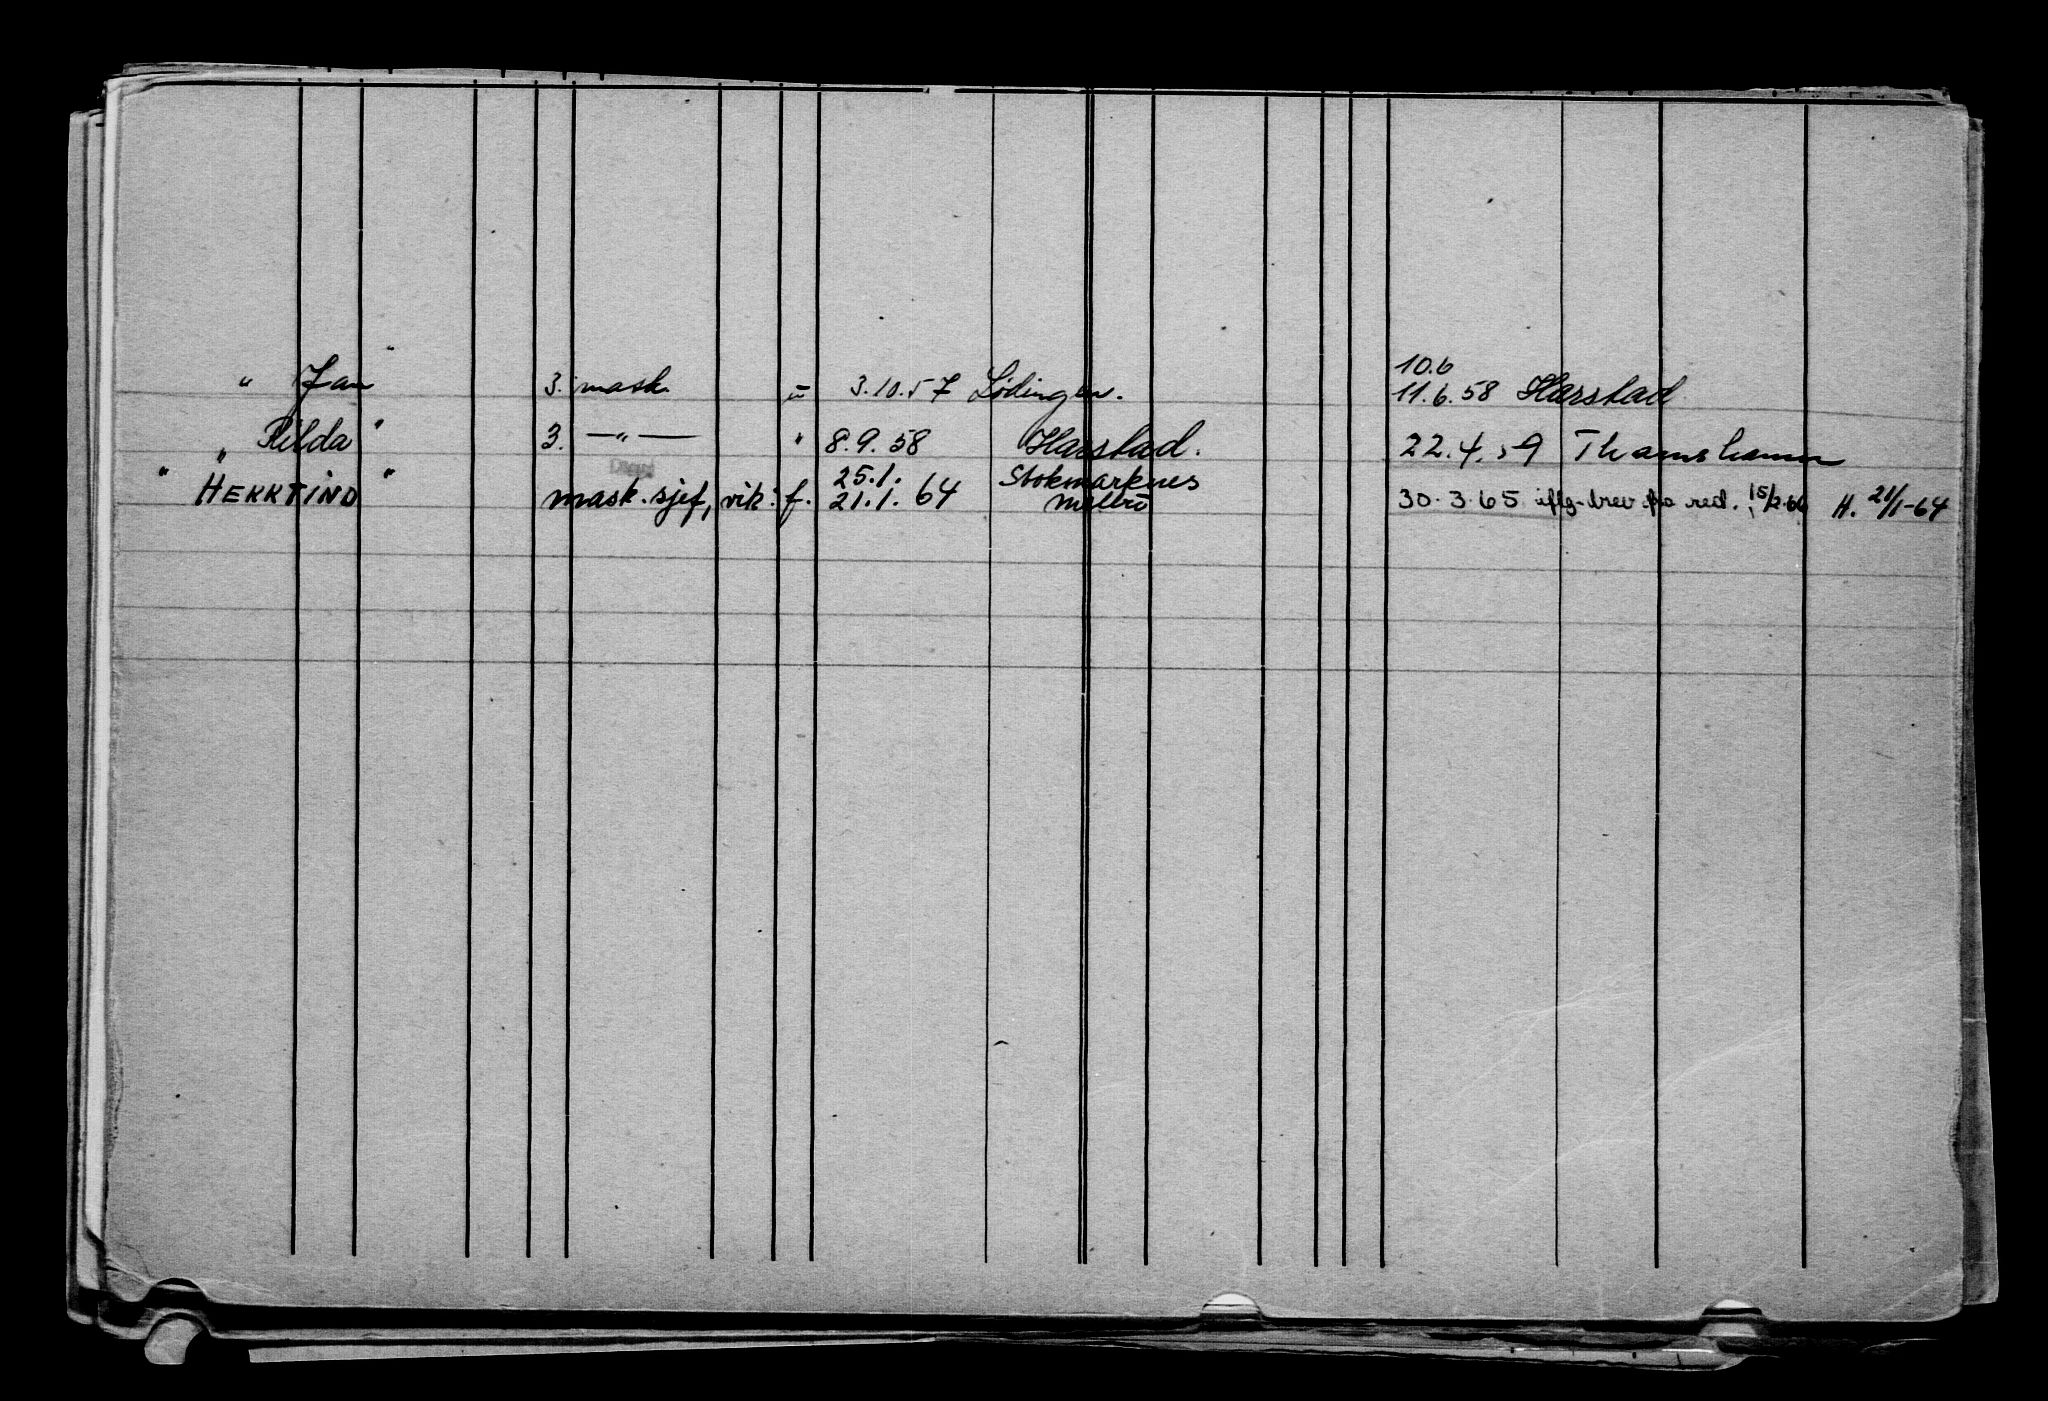 10.6
" Jan " 3. mask. " 3.10.57 Lødingen. 11.6.58 Harstad
" Rilda " 3. —"— " 8.9.58 Harstad. 22.4.59 Thamshamn
25.1. Stokmarknes
" HEKKTIND " mask.sjef, vik. f. 21.1.64 Melbo 30.3.65 iflg. brev fra red. 15/2-66 H. 21/1-64